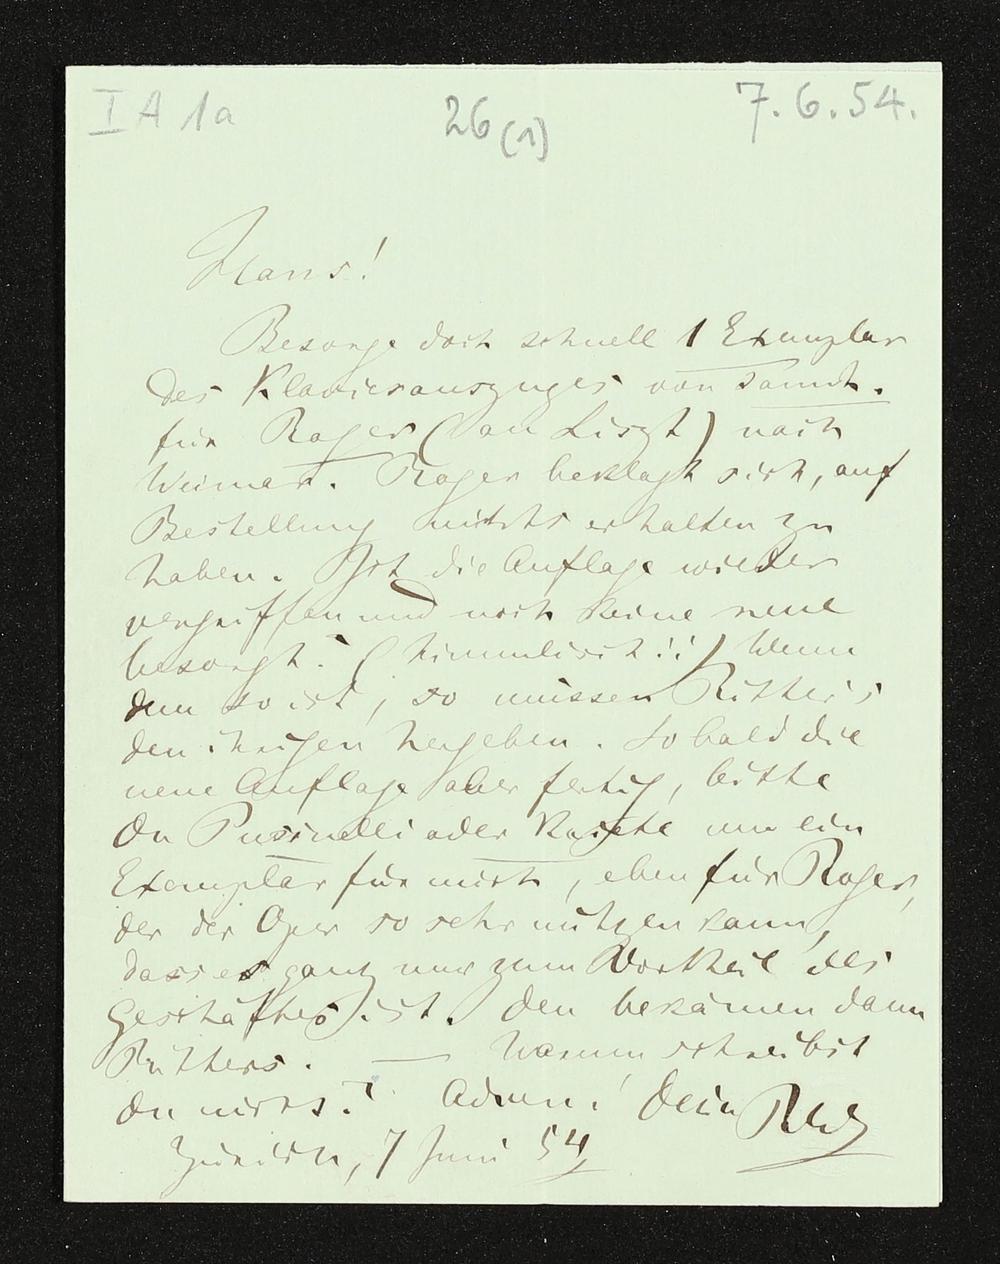 I A 1a
26 (1)
7. 6. 54.
Hans!
Besorge doch schnell 1 Exemplar
des Klavierauszuges von Tannh.
für Roger (an Liszt) nach
Weimar. Roger beklagt sich, auf
Bestellung nichts erhalten zu
haben. Ist die Auflage wieder
vergriffen und noch keine neue
besorgt? (himmlisch!!) Wenn
dem so ist, so müssen Ritter's
den ihrigen hergeben. Sobald die
neue Auflage aber fertig, bitte
Du Pusinelli oder um ein
Exemplar für mich, eben für Roger,
der der Oper so sehr nützen kann,
dass es ganz nur zum Vortheil des
Geschäftes ist. Den bekämen dann
Ritters. — Warum schreibst
du nichts? Adieu! Dein RW
Zürich, 7 Juni 54